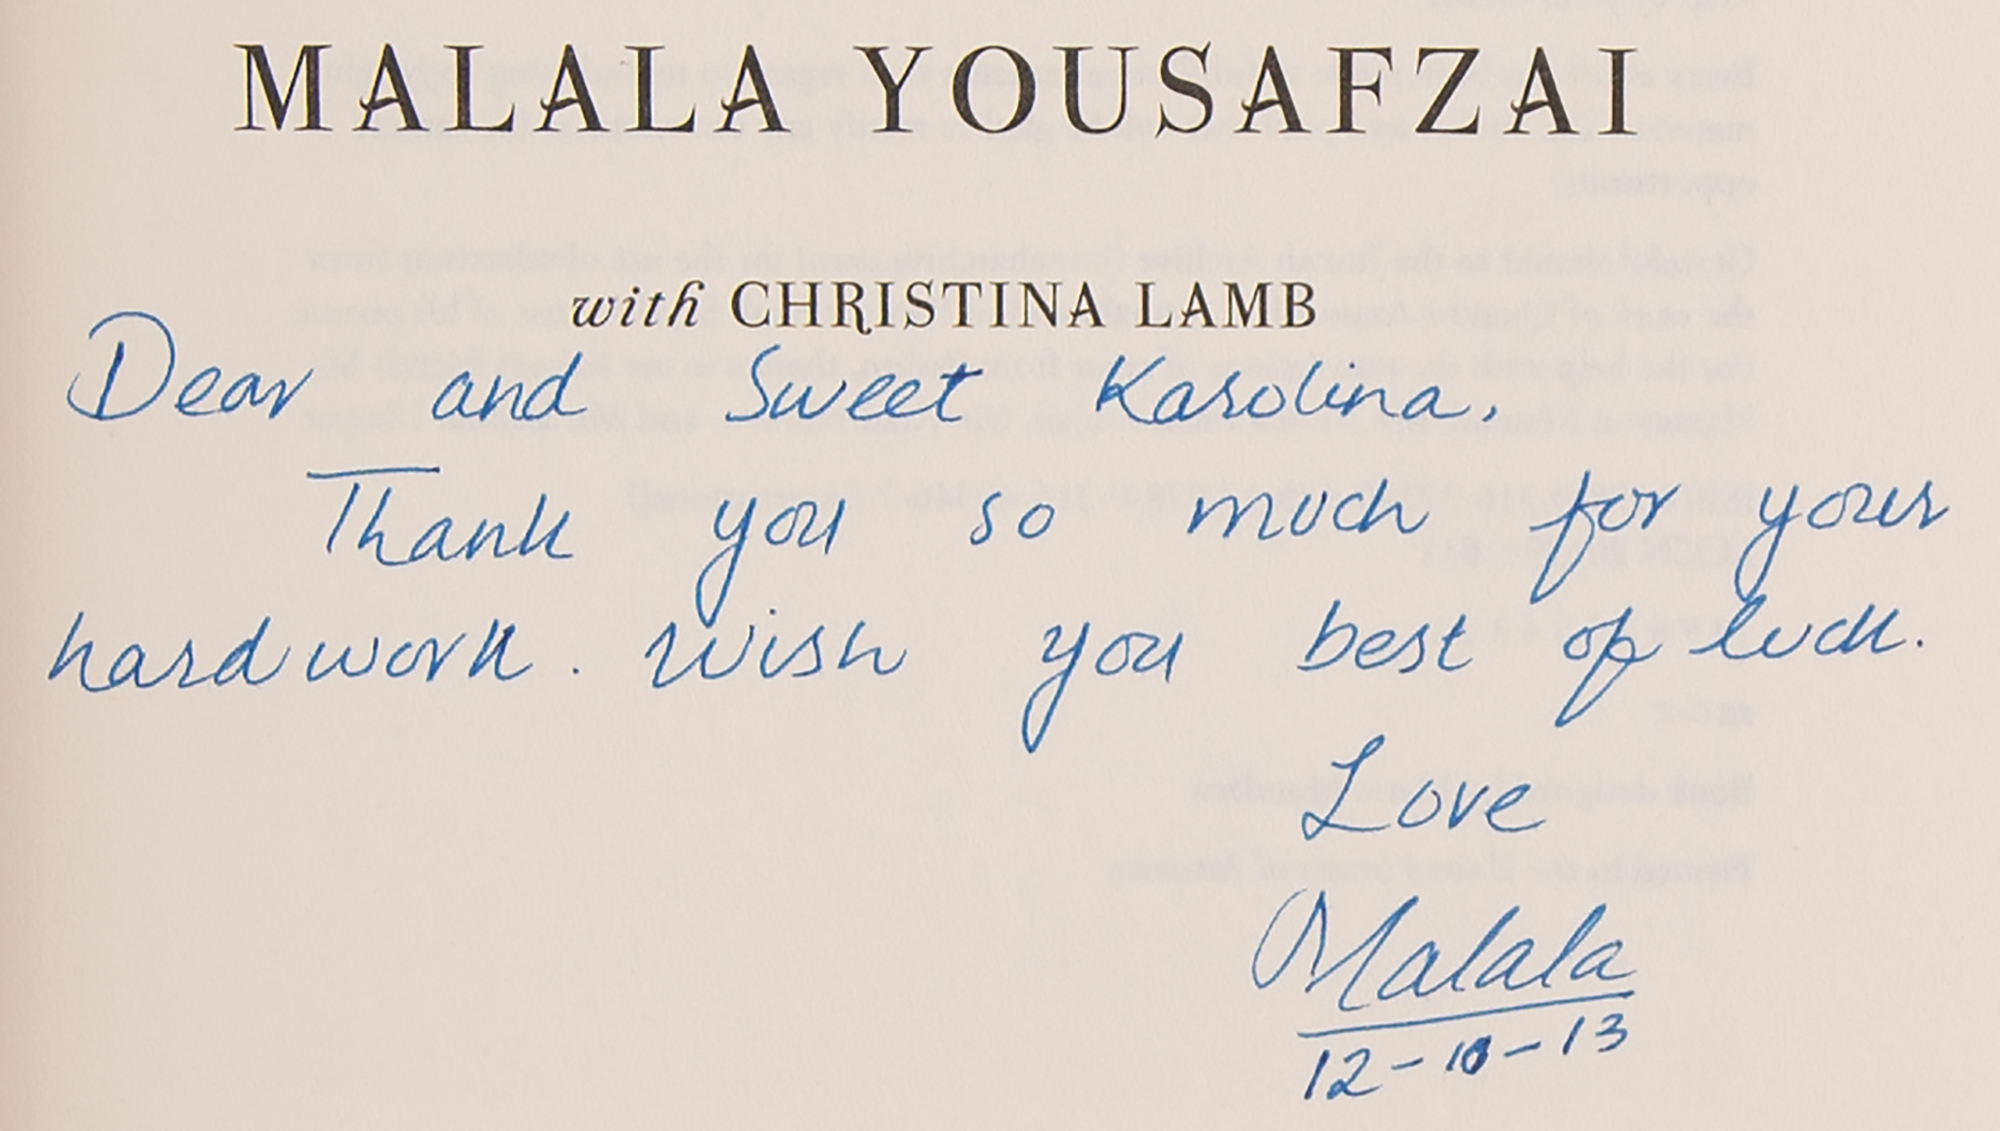 MALALA YOUSAFZAI
with CHRISTINA LAMB
Dear and Sweet Karolina,
Thank you so much for your
hardwork. Wish you best of luck.
Love
Malala
12-10-13